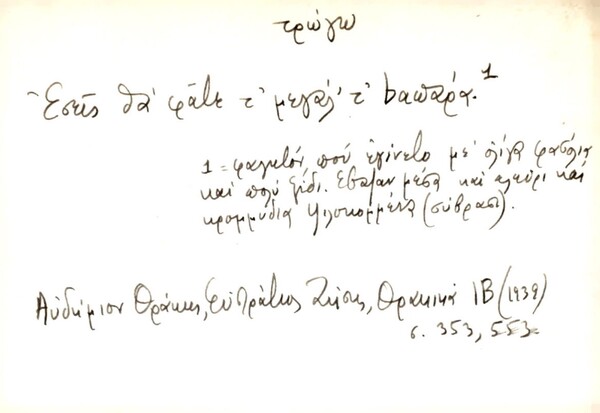 τρώγω
Ἐσεῖς θὰ φᾶτε τ' μεγάλ' τ' bαπάρα.¹
1 = φαγητόν ποὺ ἐγίνετο μὲ λίγα φασόλια
καὶ πολὺ ξίδι. Ἔβαζαν μέσα καὶ ἀλεύρι καὶ
κρομμύδια ψιλοκομμένα (σύβραση).
Αὐδήμιον Θράκης, Εὐστράτιος Ζήσης, Θρακικά ΙΒ (1939)
σ. 353, 553